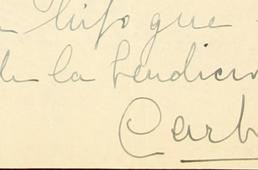 hijo que
de la bendició
Carb